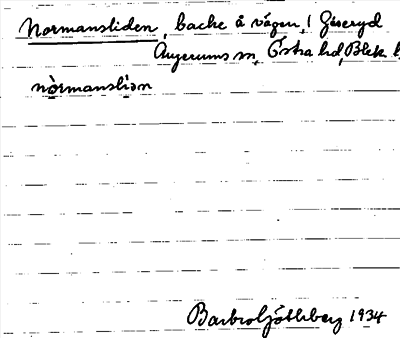 Normansliden, backe å vägen, i Gåseryd
Augerums sn, Östra hd, Blek l.
nòrmanslìən
Barbro Göthberg 1934